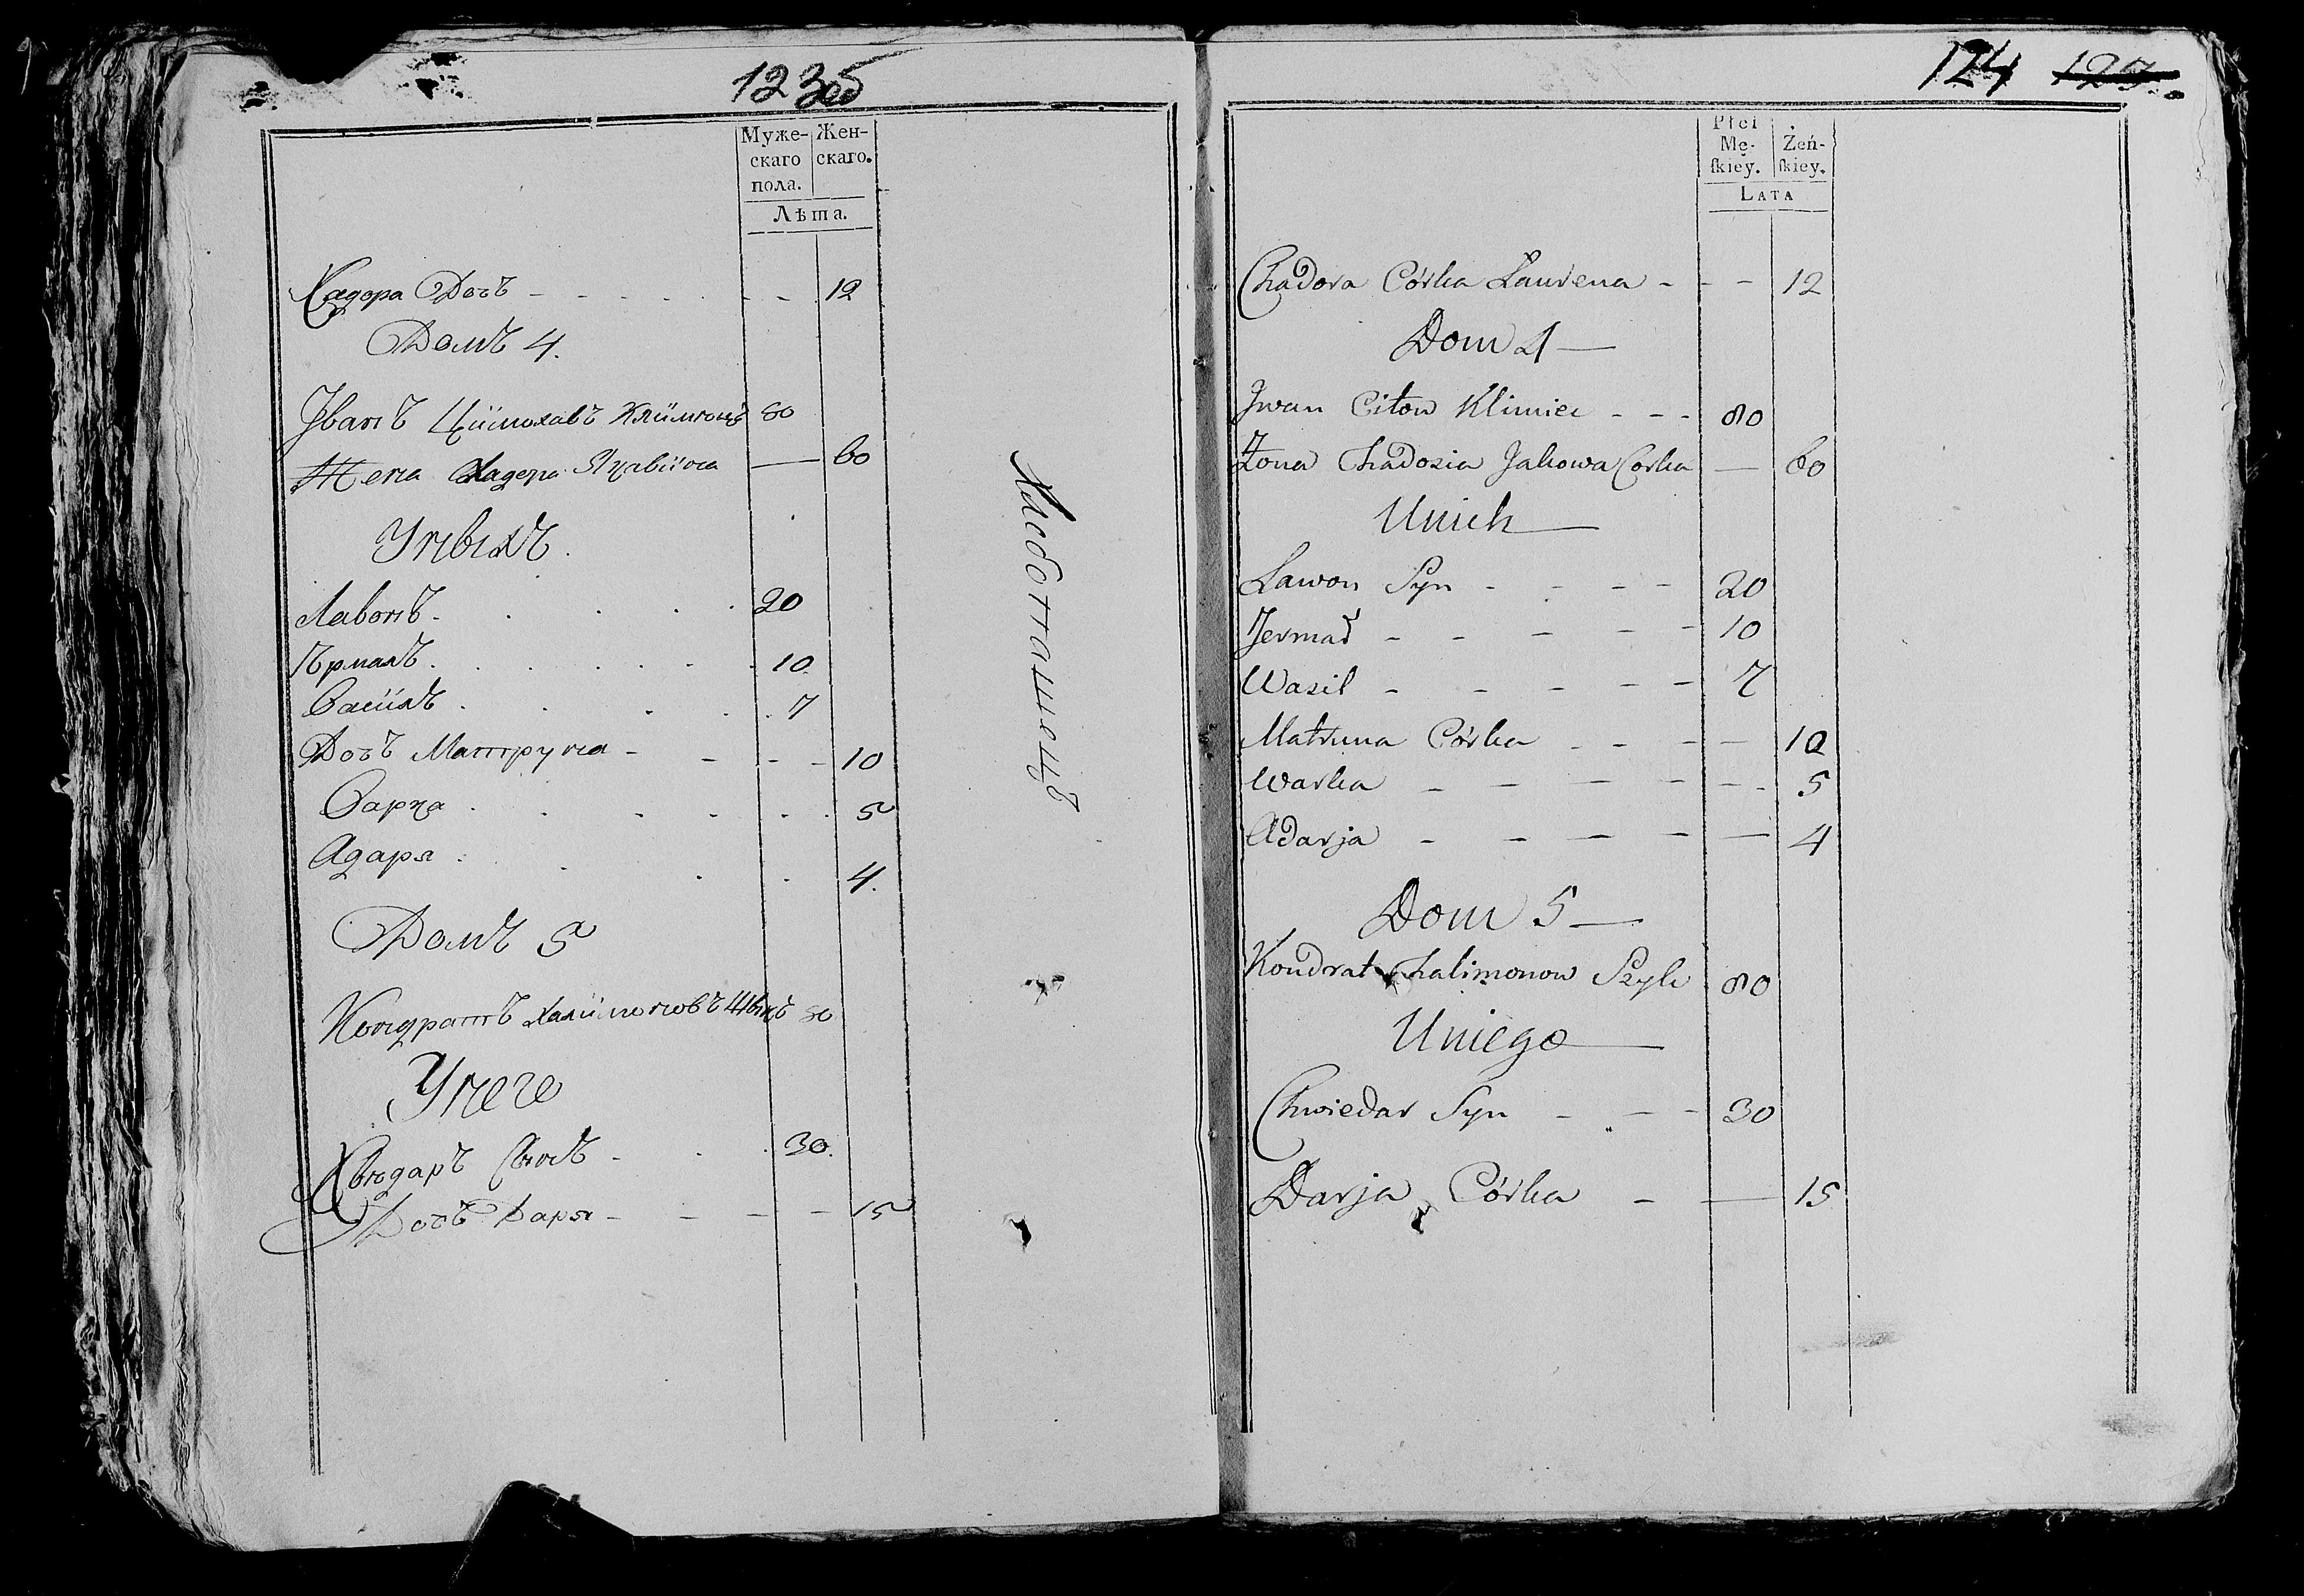 123об
Муже- Жен-
скаго скаго.
пола.
Лѣта.
Хадора Дочъ - - - - - 12
Домъ 4.
Іванъ Цимохавъ 80
Жена Хадора — 60
Уныхъ
Лавонъ. 20
Ѣрмалъ. 10
Василь. 7
Дочъ Матруна - - - - 10
Варка 5
Адаря 4.
Домъ 5
Кондратъ Халимоновъ Шыкъ 80
Унего
Хвѣдаръ Сынъ - 30.
Дочъ Даря - - - - 15
Хлѣбопашецъ
124 125.
Płci
Mę- Żeń-
ſkiey. ſkiey.
Lata
Chadora Córka Laurena - - - 12
Dom 4 —
Jwan Citow Klimiec - - - 80
Żona Chadosia Jakowa Corka — 60
Unich —
Lawon Syn - - - - 20
Jermał - - - - - 10
Wasil - - - - - 7
Matruna Córka - - - - 10
Warka - - - - - - 5
Adarja - - - - — 4
Dom 5 —
Kondrat Chalimonow Szyk 80
Uniego —
Chwiedar Syn - - - 30
Darja Córka - — 15